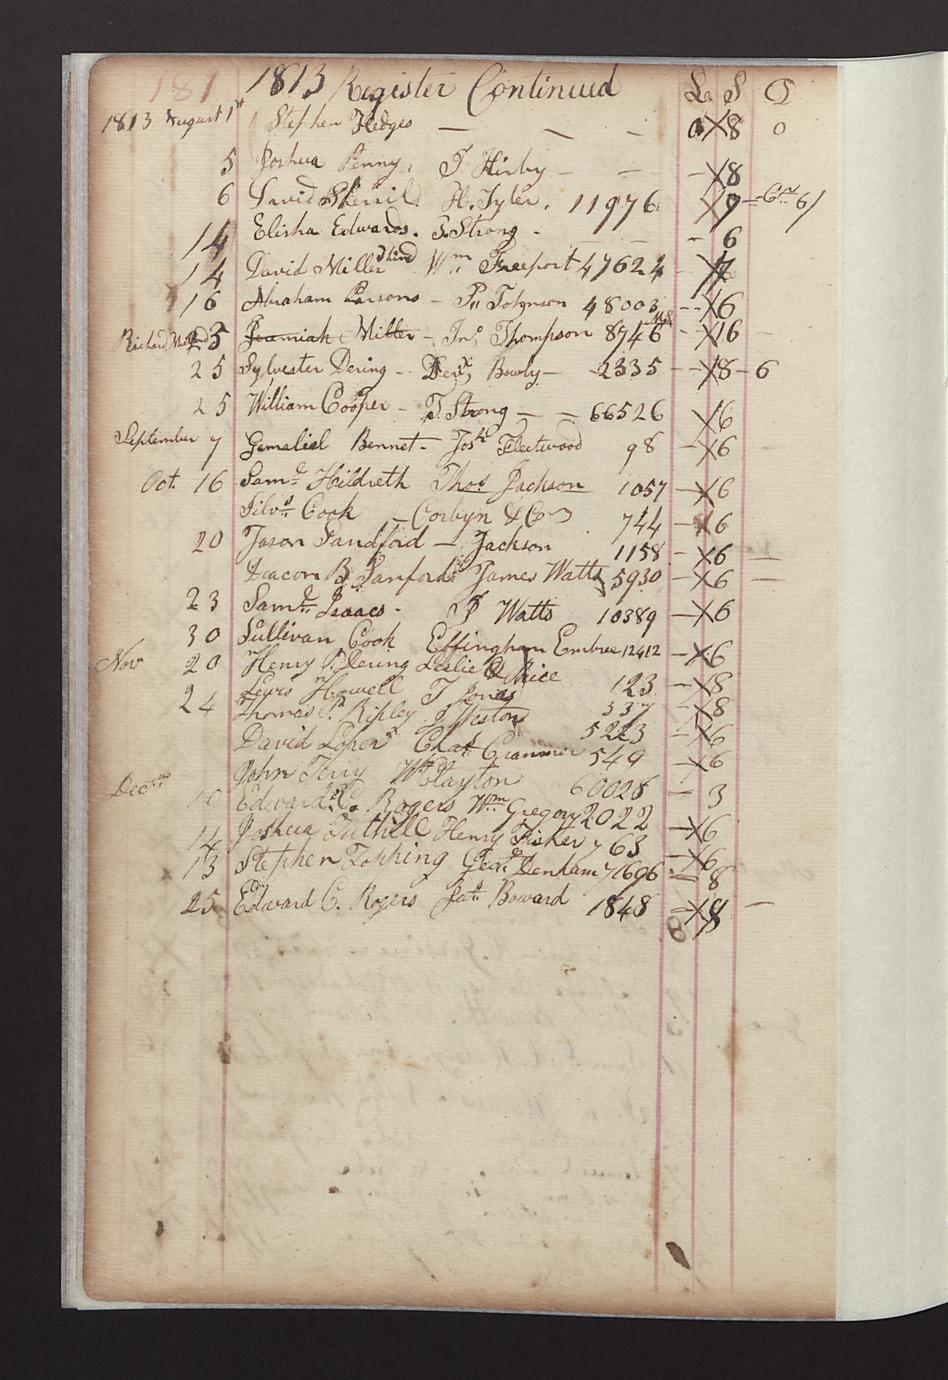 181 1813 Register Continued £ S D
1813 August 1st Stephen Hedges — — — 0 X8 0
5 Joshua Penny, T Kirby — — — X8
6 David Sherril H. Tyler. 11976 X9 — 6/
14 Elisha Edwards. T. Strong - - 6
14 David Miller third Wm Freeport 47624 - X7
16 Abraham Parsons — Ps Tolgnson 48003 -- X6
Richard 23 Jeremiah Miller — Jno Thompson 8746 - X16 —
25 Sylvester Dering -- Bowly — 2335 -- X8 - 6
25 William Cooper — T. Strong — = 66526 X6
September 7 Gamaliel Bennet — Josh Fleetwood 98 — X6
Oct. 16 Saml Hildreth Thos Jackson 1057 — X6
Silvs Cook — Corbyn & Co 744 — X6
20 Jason Sandford — Jackson 1158 - X6 —
Deacon B Sanford James Watts 5930 — X6 —
23 Saml Isaacs - J Watts 10389 — X6
30 Sullivan Cook Effingham Embree 12412 — X6
Nov 20 Henry P. Dering Leslie & Price 123 — X8
24 Lewis Howell T Jones 337 — X8
Thomas P. Ripley J Weston 5223 — X6
David Loper Chas Grammer 549 — X6
John Terry Wm Clayton 60028 — 3
Decr 10 Edward C. Rogers Wm Gregory 2022 — X6
14 Joshua Tuthill Henry Fisher 763 — X6
13 Stephen Topping Geo. Denham 71696 — 8
25 Edward C. Rogers Jas Boward 1848 — X8 —
8